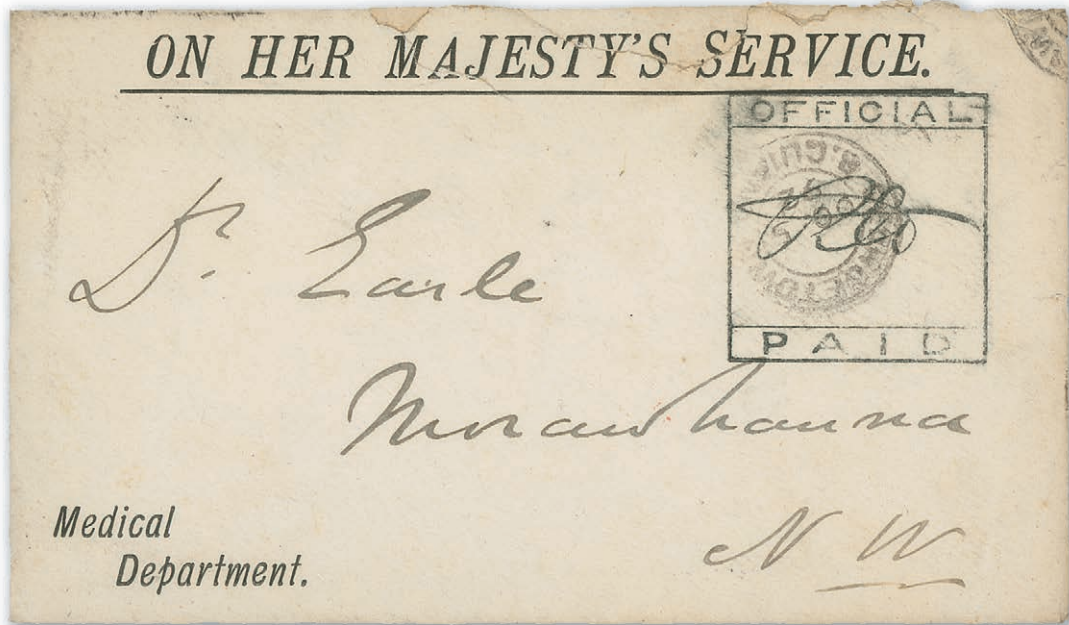 ON HER MAJESTY'S SERVICE.
OFFICIAL
B. GUIANA
GEORGETOWN
PAID
Dr. Earle
Morawhanna
N W
Medical
Department.